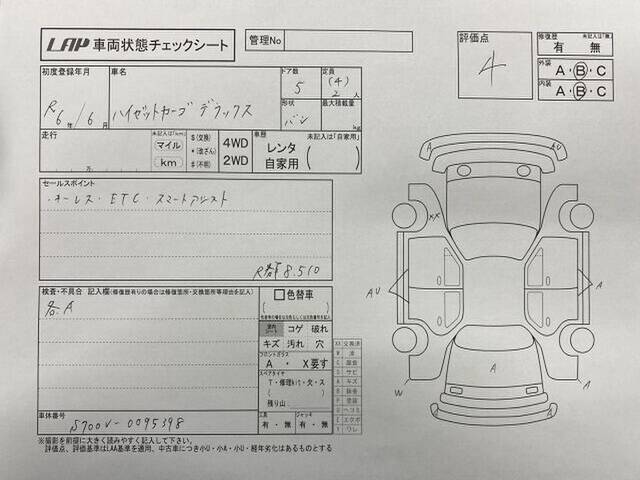 LAP 車両状態チェックシート
管理No
評価点
4
修復歴 未記入は「無」
有 ・ 無
外装 A・B・C
内装 A・B・C
初度登録年月
R6年/6月
車名
ハイゼットカーゴ デラックス
ドア数
5
定員
(4)
2人
形状
バン
最大積載量
kg
走行
未記入は(km)
マイル
km
$(交換)
*(改ざん)
#(不明)
4WD
2WD
車歴 未記入は「自家用」
レンタ
自家用
万
セールスポイント
・キーレス・ETC・スマートアシスト
R券 8.510
検査・不具合 記入欄(修復歴有りの場合は修復箇所・交換箇所等理由を記入)
各A
□色替車
室内
シート
コゲ 破れ
キズ 汚れ 穴
フロントガラス
A ・ X要す
スペアタイヤ
T・修理kit・欠・ス
残り山
工具
有・無
ジャッキ
有・無
XX 交換済
W 波
C 腐食
S サビ
A キズ
U ヘコミ
Y ワレ
車体番号
S700V-0095398
※撮影を前提に大きく読みやすく記入して下さい。
評価点、評価基準はLAA基準を適用、中古車につき小U・小A・小U・経年劣化はあるものとする
A
AU
XX
AU
A
A
W
A